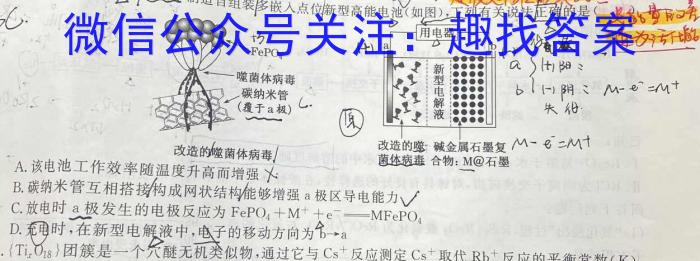 制造自组装多嵌入点位新型高能电池(如图),下列有关说法正确的是(
微信公众号关注:趣找答案
FePO₄
噬菌体病毒
碳纳米管
(覆于a极)
用电器
a
b
新型电解液
改造的噬菌体病毒
改造的噬菌体病毒
碱金属石墨复合物:M@石墨
a (+) 阳
b (-) 阴 M-e⁻=M⁺
失
M-e⁻=M⁺
A.该电池工作效率随温度升高而增强
B.碳纳米管互相搭接构成网状结构能够增强a极区导电能力
C.放电时a极发生的电极反应为FePO₄+M⁺+e⁻══MFePO₄
D.充电时,在新型电解液中,电子的移动方向为b→a
.{Ti₇O₁₈}团簇是一个穴醚无机类似物,通过它与Cs⁺反应测定Cs⁺取代Rb⁺反应的平衡常数(K)